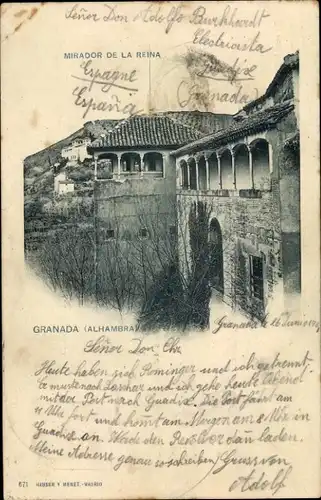 Señor Don Adolfo Burkhardt
MIRADOR DE LA REINA
Electricista
Espagne
España
Granada
GRANADA (ALHAMBRA)
Granada le 26 Junio
Señor Don
Heute haben sich Sominger und ich getrennt.
Er muste nach und ich gehe heute Abend
mit der Post nach Guadix. Die Post fährt am
11 Uhr fort und komt am Morgen am 8 Uhr in
Guadix an. Werde den laden.
Meine Adresse genau so schreiben. Gruss von
Adolf
671 HAUSER Y MENET.-MADRID